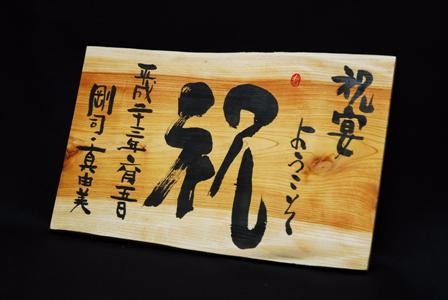 祝宴
ようこそ
祝
平成二十三年・有吾
剛司・真由美